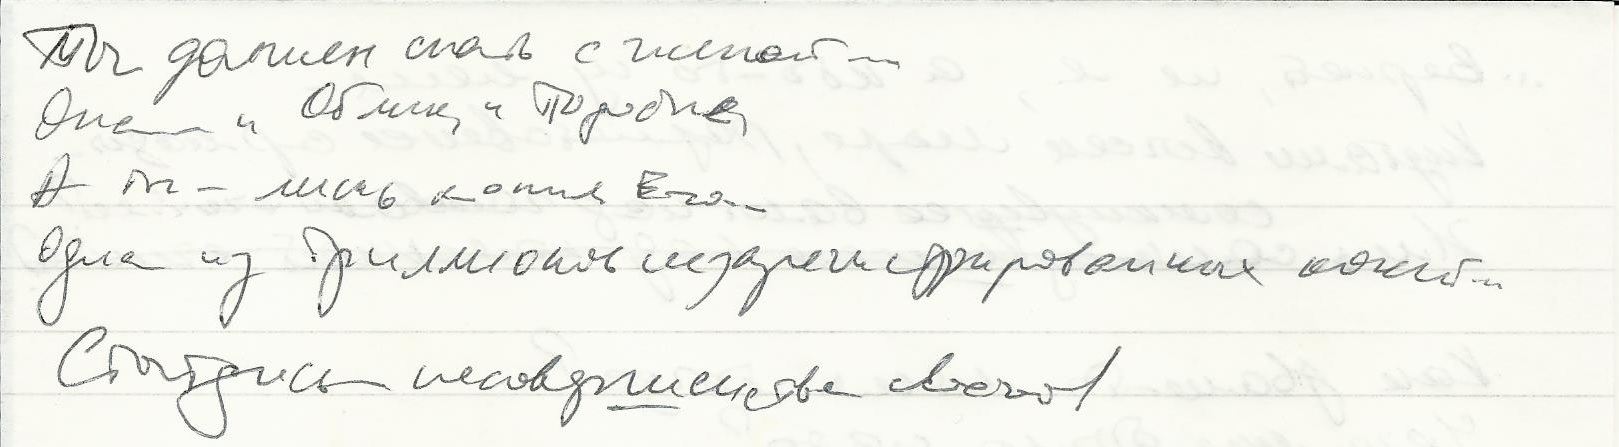 Ты должен спать с женой...
Она... и Облик, и Подобие,
А ты – лишь копия Его...
Одна из триллионов незарегистрированных копий...
Стыдись несовершенства своего!